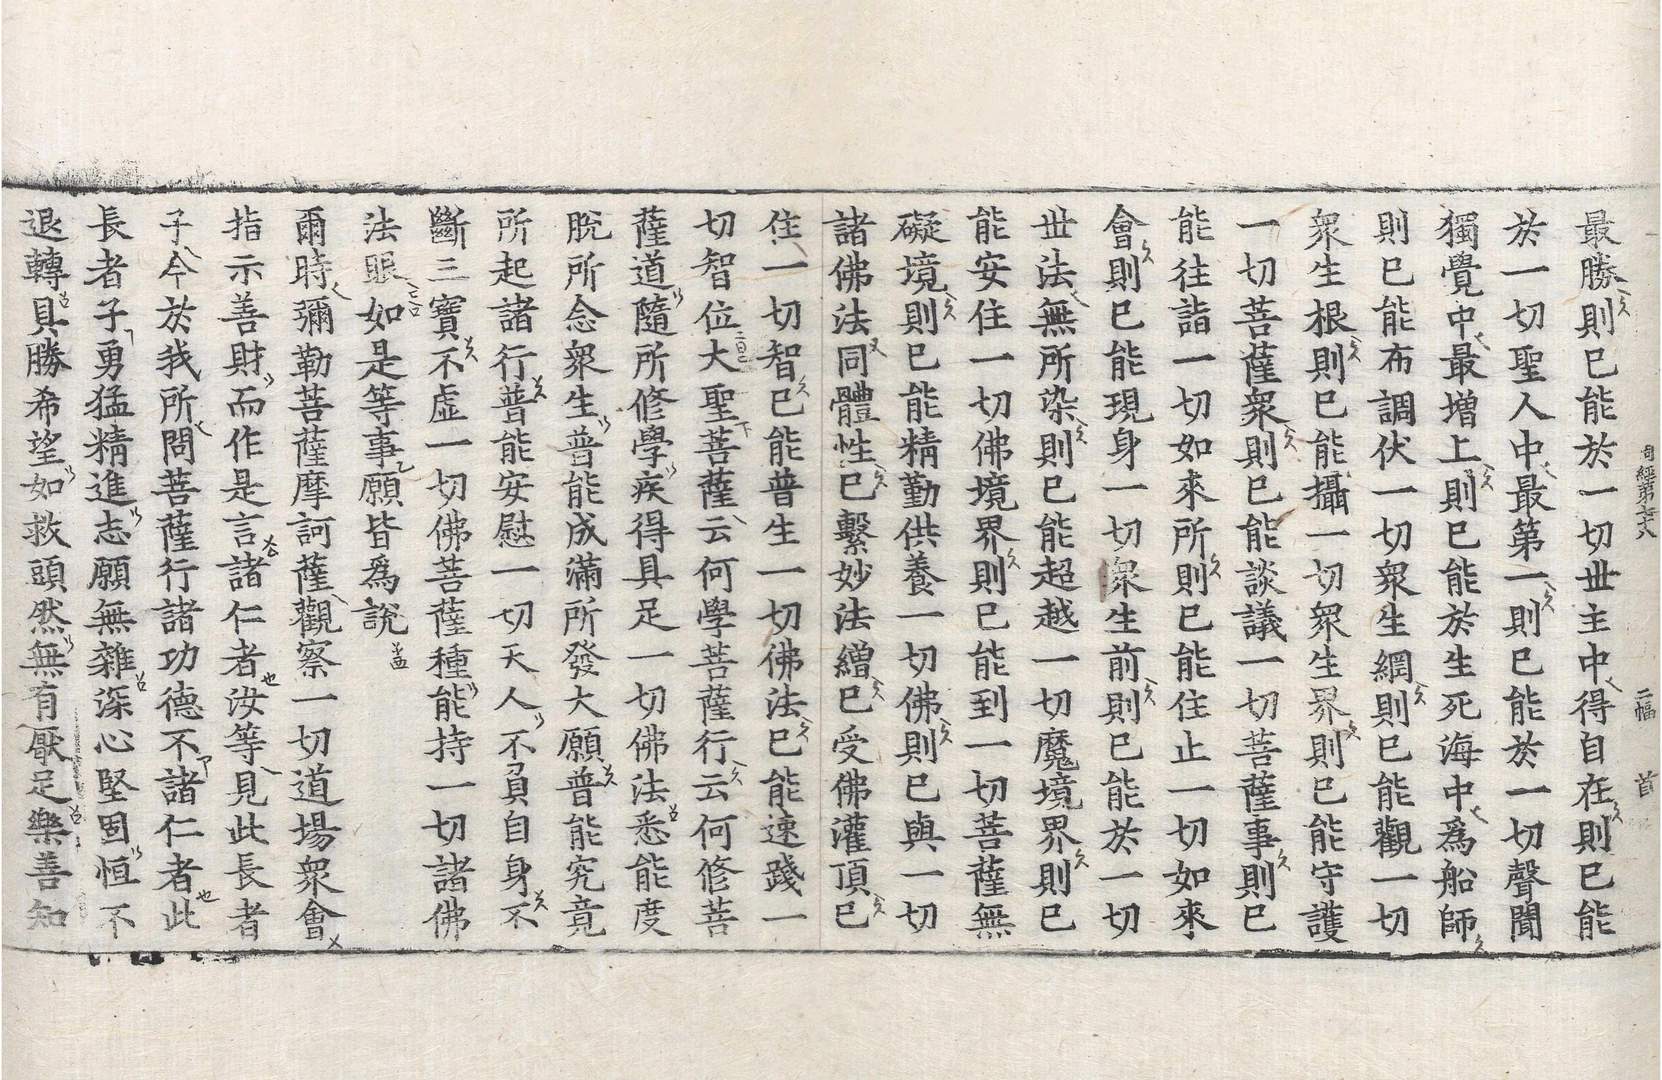 最勝則已能於一切世主中得自在則已能
於一切聖人中最第一則已能於一切聲聞
獨覺中最增上則已能於生死海中爲船師
則已能布調伏一切衆生綱則已能觀一切
衆生根則已能攝一切衆生界則已能守護
一切菩薩衆則已能談議一切菩薩事則已
能往詣一切如來所則已能住止一切如來
會則已能現身一切衆生前則已能於一切
世法無所染則已能超越一切魔境界則已
能安住一切佛境界則已能到一切菩薩無
礙境則已能精勤供養一切佛則已與一切
諸佛法同體性已繫妙法繒已受佛灌頂已
住一切智已能普生一切佛法已能速踐一
切智位大聖菩薩云何學菩薩行云何修菩
薩道隨所修學疾得具足一切佛法悉能度
脫所念衆生普能成滿所發大願普能究竟
所起諸行普能安慰一切天人不負自身不
斷三寶不虛一切佛菩薩種能持一切諸佛
法眼如是等事願皆爲說
爾時彌勒菩薩摩訶薩觀察一切道場衆會
指示善財而作是言諸仁者汝等見此長者
子今於我所問菩薩行諸功德不諸仁者此
長者子勇猛精進志願無雜深心堅固恒不
退轉具勝希望如救頭然無有厭足樂善知